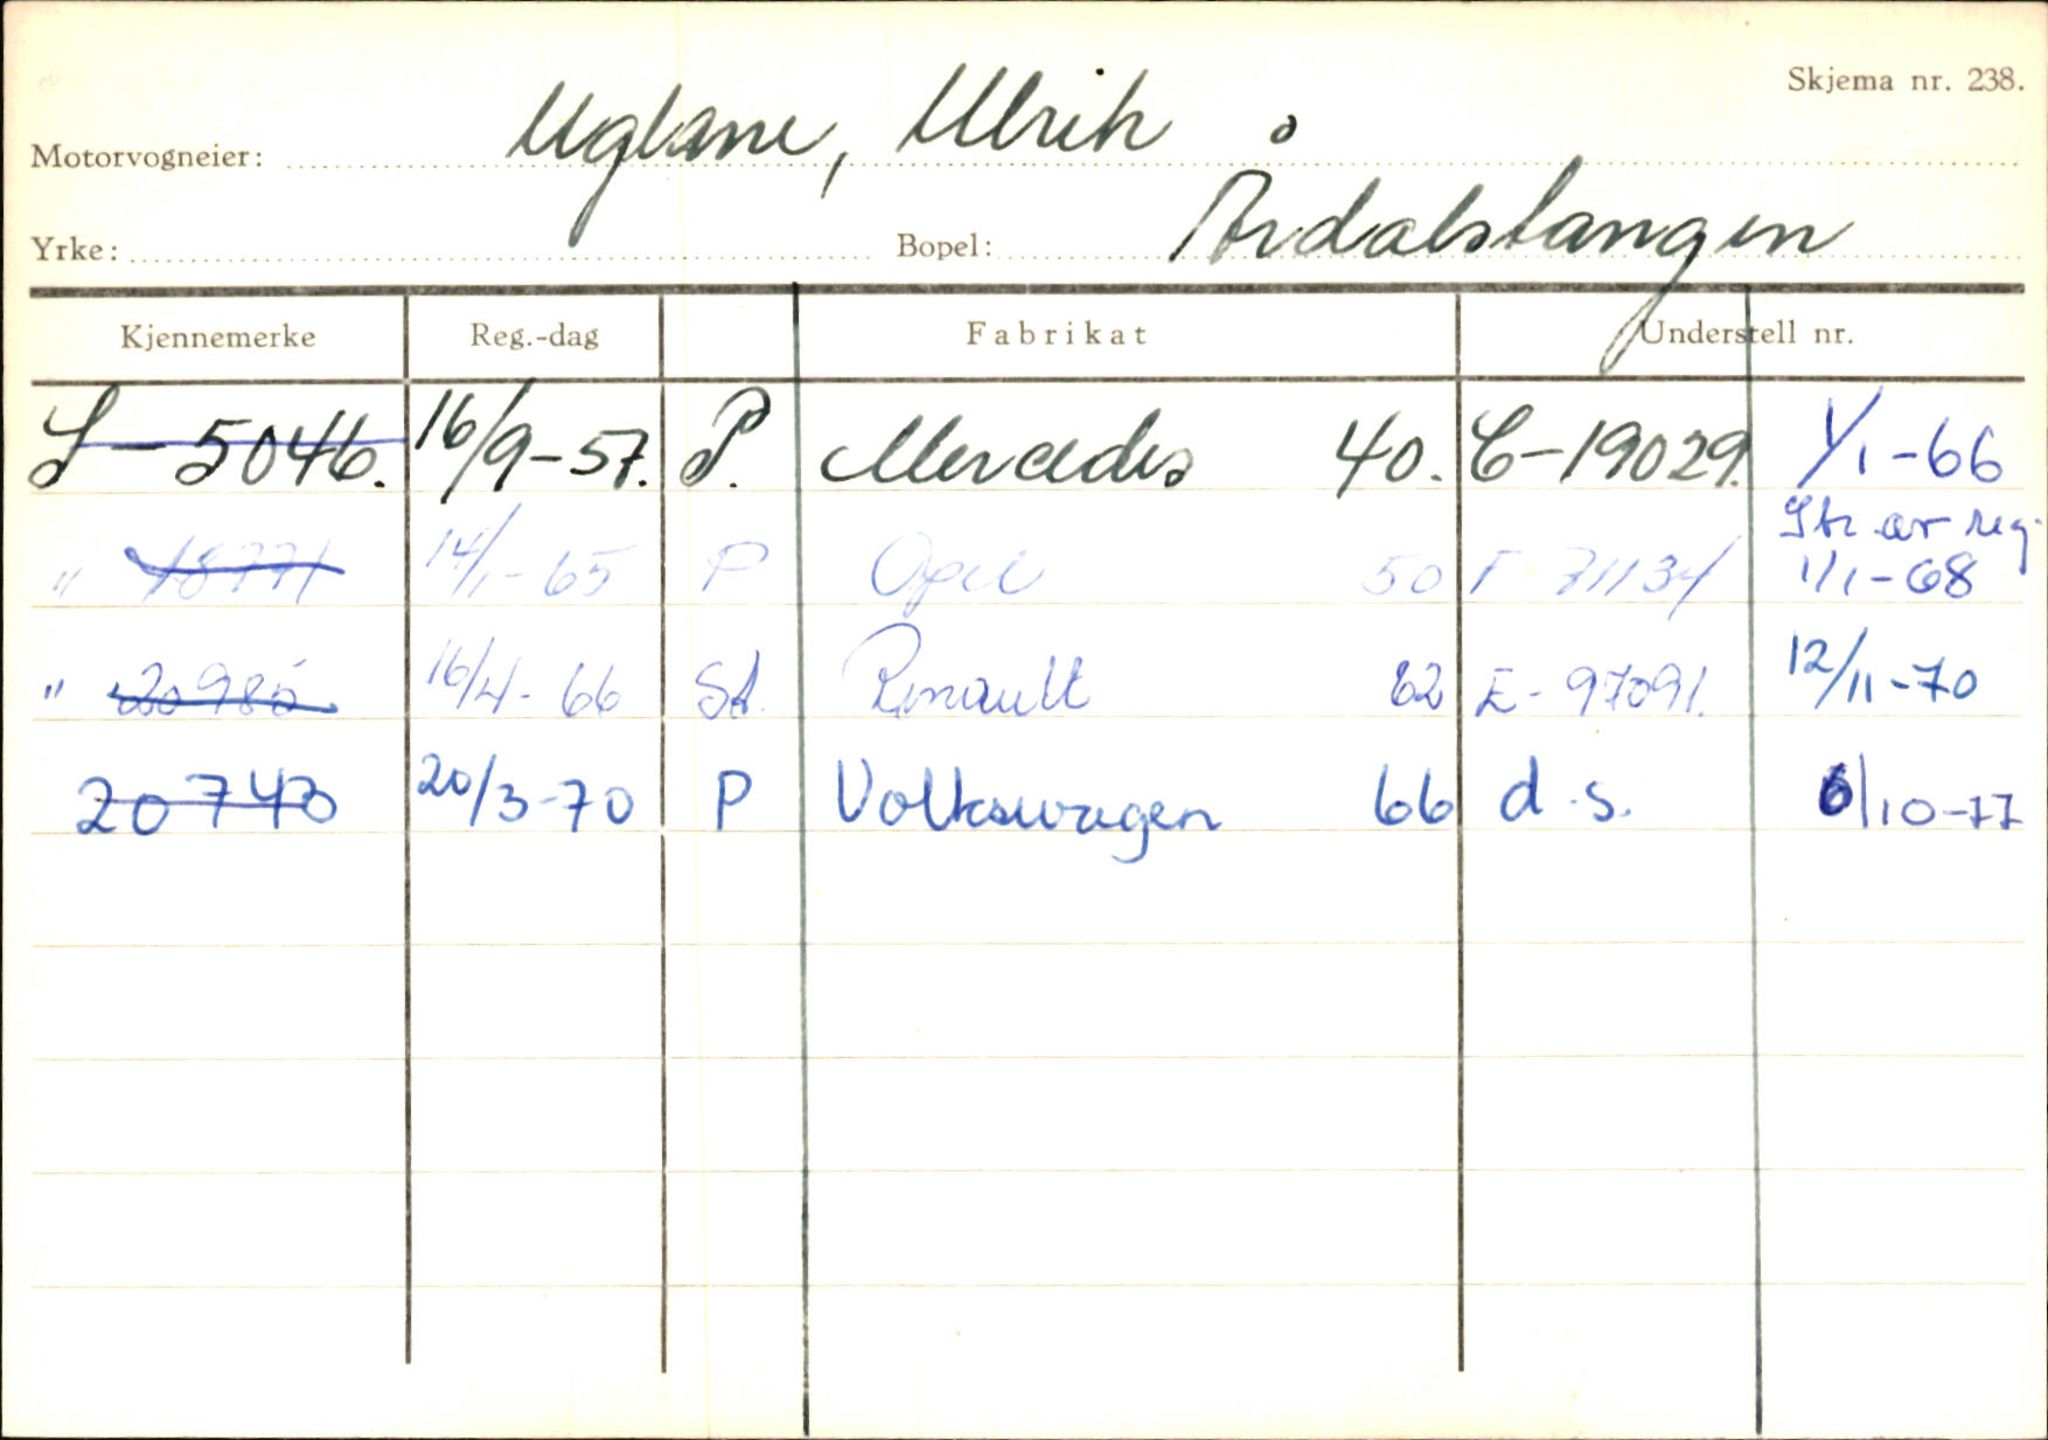 Skjema nr. 238.
Motorvogneier: Uglane, Ulrik
Yrke: Bopel: Årdalstangen
Kjennemerke Reg.-dag Fabrikat Understell nr.
S-5046. 16/9-57. P. Mercedes 40. C-19029. 1/1-66
" 18771 14/1-65 P Opel 50 F 71134 Str. av reg. 1/1-68
" 20985 16/4-66 St. Renault 62 E-97091. 12/11-70
20743 20/3-70 P Volkswagen 66 d.s. 6/10-77